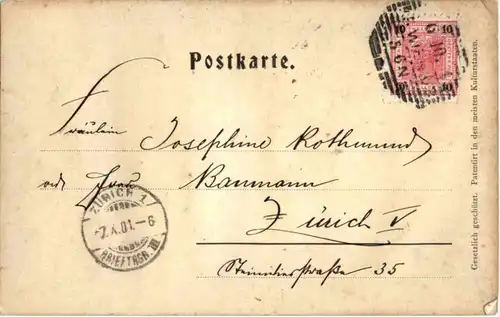 Postkarte.
10 10
Fräulein Josephine Rothmund
Frau Baumann
Zürich V
35
ZÜRICH 1
-7.X.01.-6
BRIEFTRGR. III
Gesetzlich geschützt. Patentirt in den meisten Kulturstaaten.